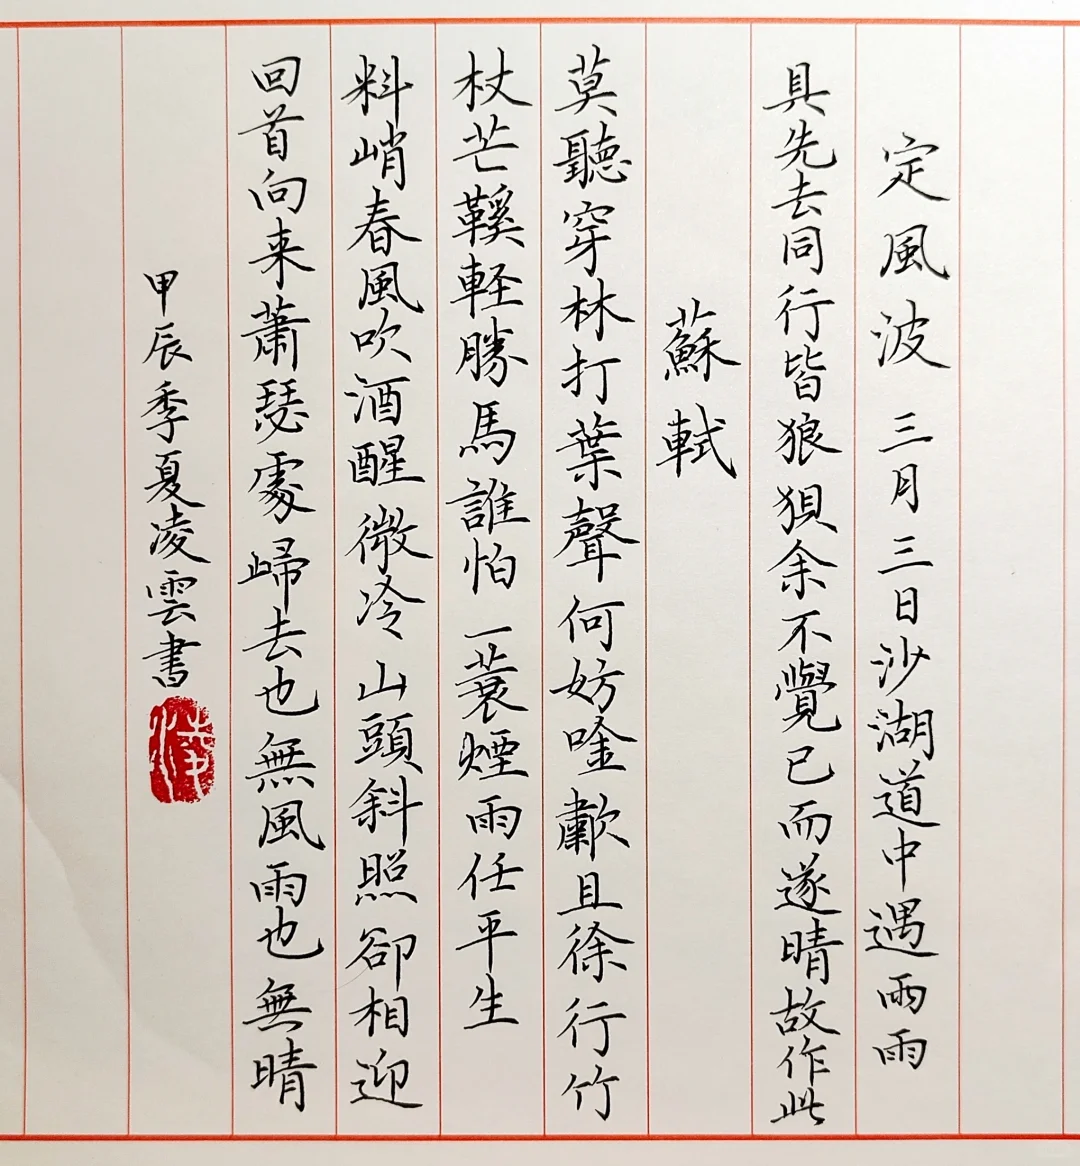 定風波 三月三日沙湖道中遇雨雨
具先去同行皆狼狽余不覺已而遂晴故作此
蘇軾
莫聽穿林打葉聲何妨唫歗且徐行竹
杖芒鞵軽勝馬誰怕一蓑煙雨任平生
料峭春風吹酒醒微冷山頭斜照卻相迎
回首向来蕭瑟處歸去也無風雨也無晴
甲辰季夏凌雲書